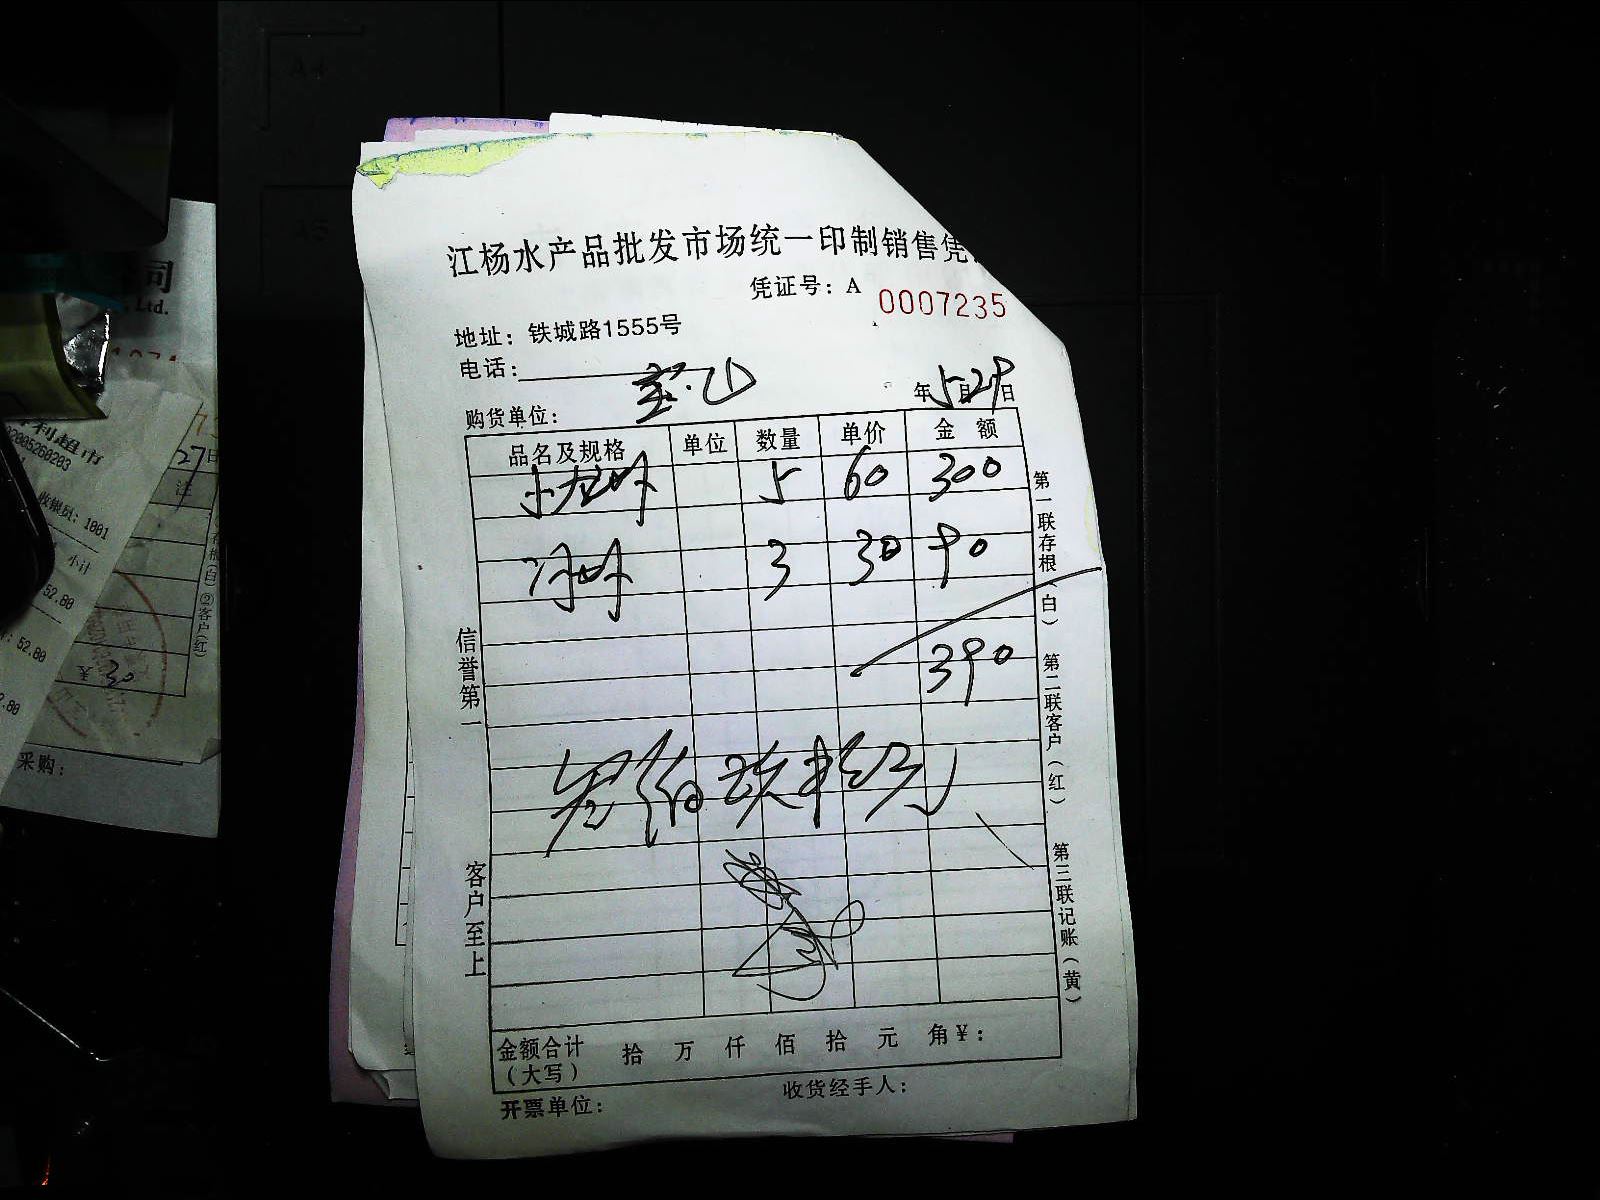 江杨水产品批发市场统一印制销售凭
凭证号：A 0007235
地址：铁城路1555号
电话：
年5月29日
购货单位：
品名及规格 单位 数量 单价 金额
小龙虾 5 60 300
河虾 3 30 90
390
叁佰玖拾元
金额合计（大写） 拾 万 仟 佰 拾 元 角 ¥：
收货经手人：
开票单位：
信誉第一
客户至上
第一联存根（白） 第二联客户（红） 第三联记账（黄）
司
Ltd.
利超市
02005260203
收银员：1001
小计
52.80
52.80
27日
②客户（红）
¥ 30
采购：